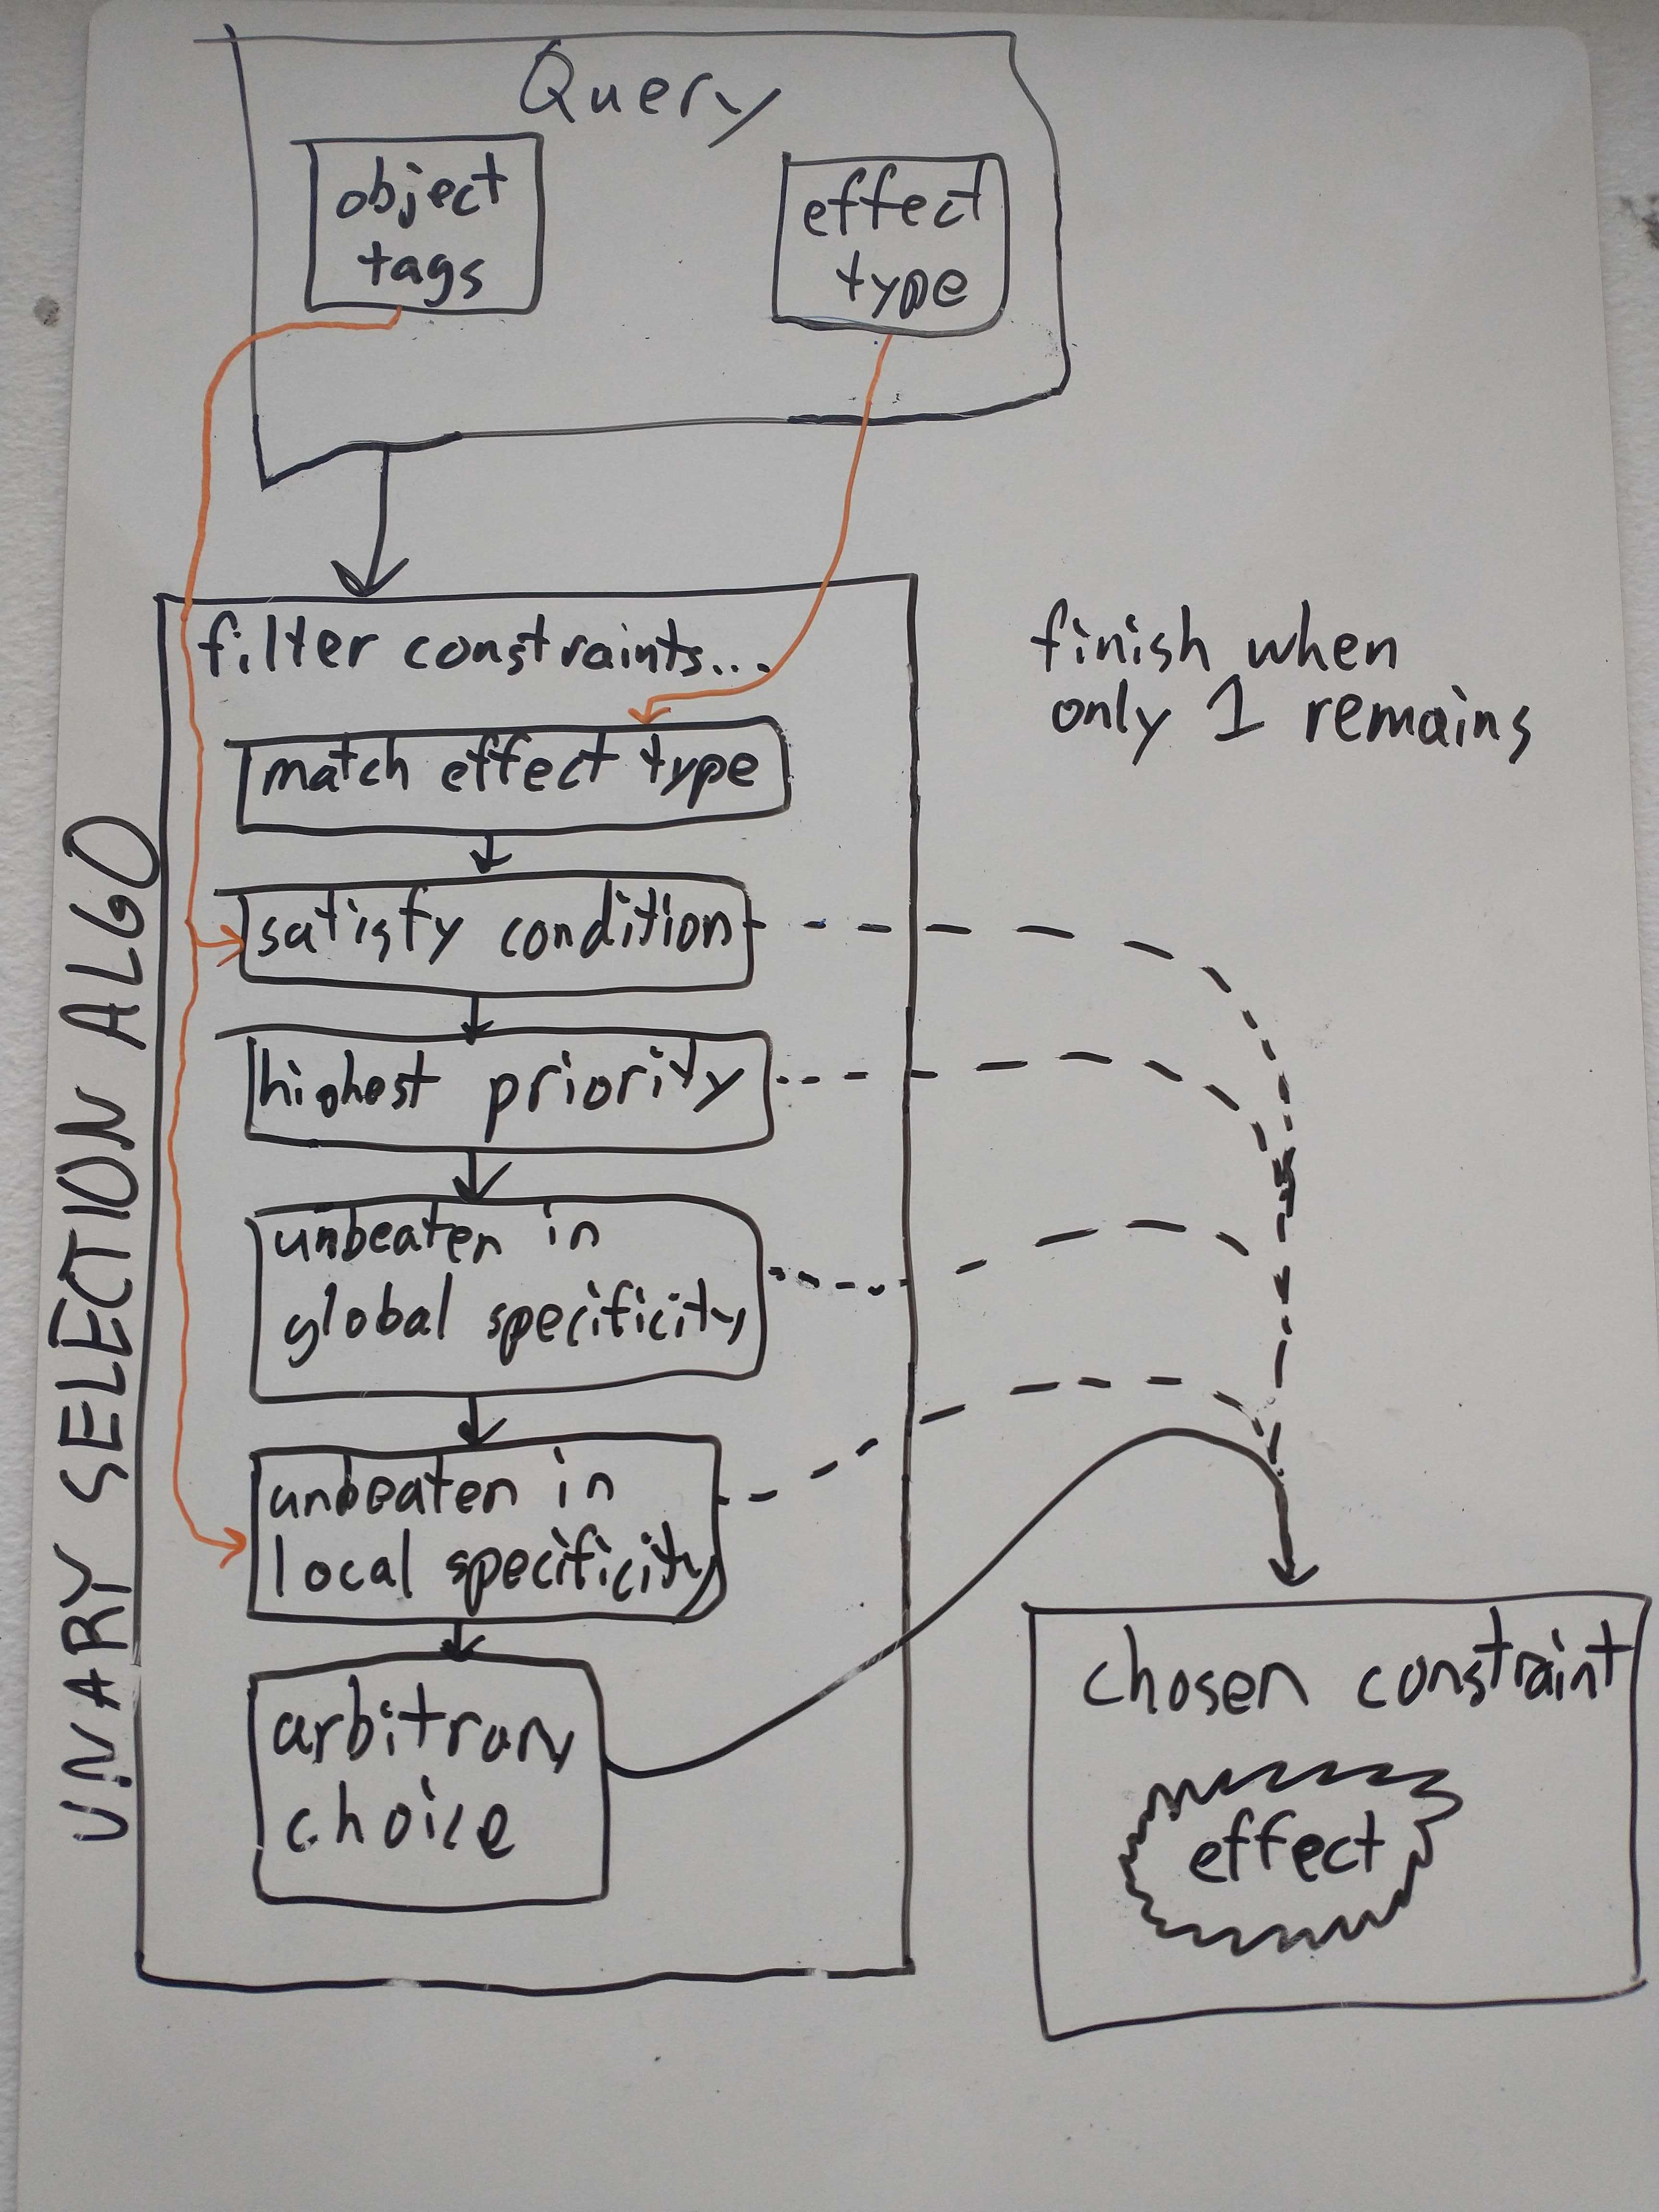 Query
object
tags
effect
type
filter constraints...
finish when
only 1 remains
match effect type
satisfy condition
highest priority
unbeaten in
global specificity
unbeaten in
local specificity
arbitrary
choice
UNARY SELECTION ALGO
chosen constraint
effect